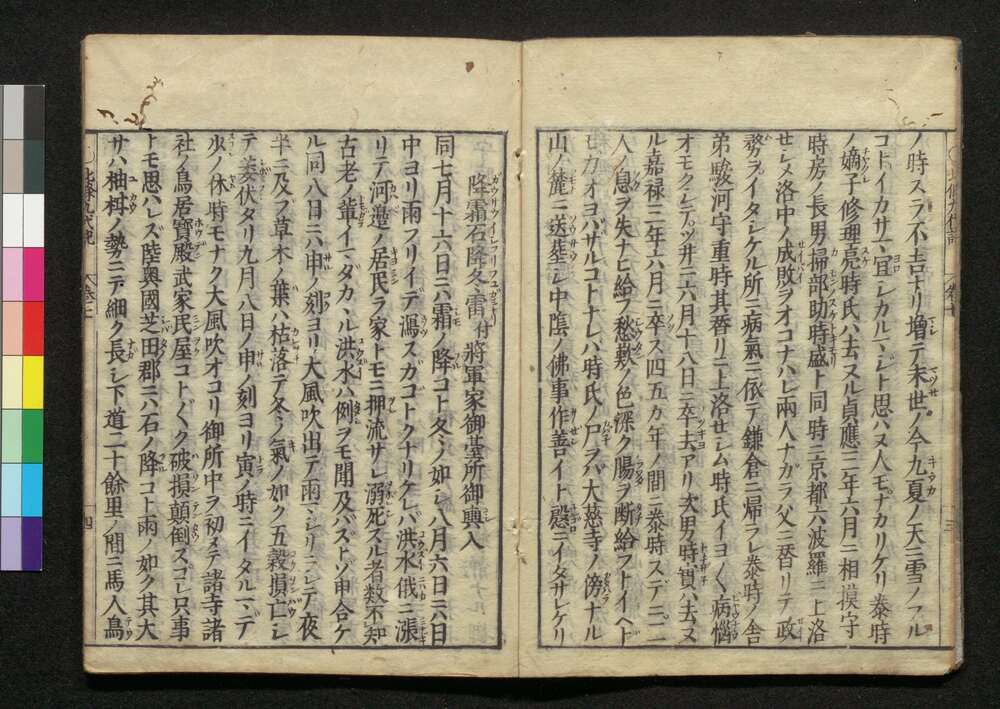 ノ時スラ不吉ナリ増テ末世ノ今九夏ノ天ニ雪ノフル
コトイカサマ宜シカルマジト思ハヌ人モナカリケリ泰時
ノ嫡子修理亮時氏ハ去ヌル貞應三年六月ニ相摸守
時房ノ長男掃部助時盛ト同時ニ京都六波羅ニ上洛
セシメ洛中ノ成敗ヲオコナハレ兩人ナガラ父ニ替リテ政
務ヲイタシケル所ニ病氣ニ依テ鎌倉ニ帰ラレ泰時ノ舎
弟駿河守重時其替リニ上洛セシム時氏イヨ〱病惱
オモクシテツ井ニ六月十八日ニ卒去アリ次男時實ハ去ヌ
ル嘉禄三年六月ニ卒ス四五カ年ノ間ニ泰時スデニ二
人ノ息ヲ失ナヒ給フ愁歎ノ色深ク腸ヲ断給フトイヘド
モカオヨバザルコトナレバ時氏ノ尸ヲバ大慈寺ノ傍ナル
山ノ麓ニ送葬シ中陰ノ佛事作善イト慇ニイタサレケリ
三
降霜石降冬雷付將軍家御墓所御輿入
同七月十六日ニハ霜ノ降コト冬ノ如シ八月六日ニハ日
中ヨリ雨フリイデ瀉スガコトクナリケレバ洪水俄ニ漲
リテ河邉ノ居民ラ家トモニ押流サレ溺死スル者数不知
古老ノ輩イマダカヽル洪水ハ例ヲモ聞及バズトゾ申合ケ
ル同八日ニハ申ノ刻ヨリ大風吹出テ雨マシリニシテ夜
半ニ及ブ草木ノ葉ハ枯落テ冬ノ氣ノ如ク五穀損亡シ
テ萎伏タリ九月八日ノ申ノ刻ヨリ寅ノ時ニイタルマデ
少ノ休時モナク大風吹オコリ御所中ヲ初メテ諸寺諸
社ノ鳥居寳殿武家民屋コト〲ク破損顛倒スコレ只事
トモ思ハレズ陸奥國芝田郡ニハ石ノ降コト雨ノ如ク其大
サハ柚柑ノ勢ニテ細ク長シ下道二十餘里ノ間ニ馬人鳥
北條九代記
四